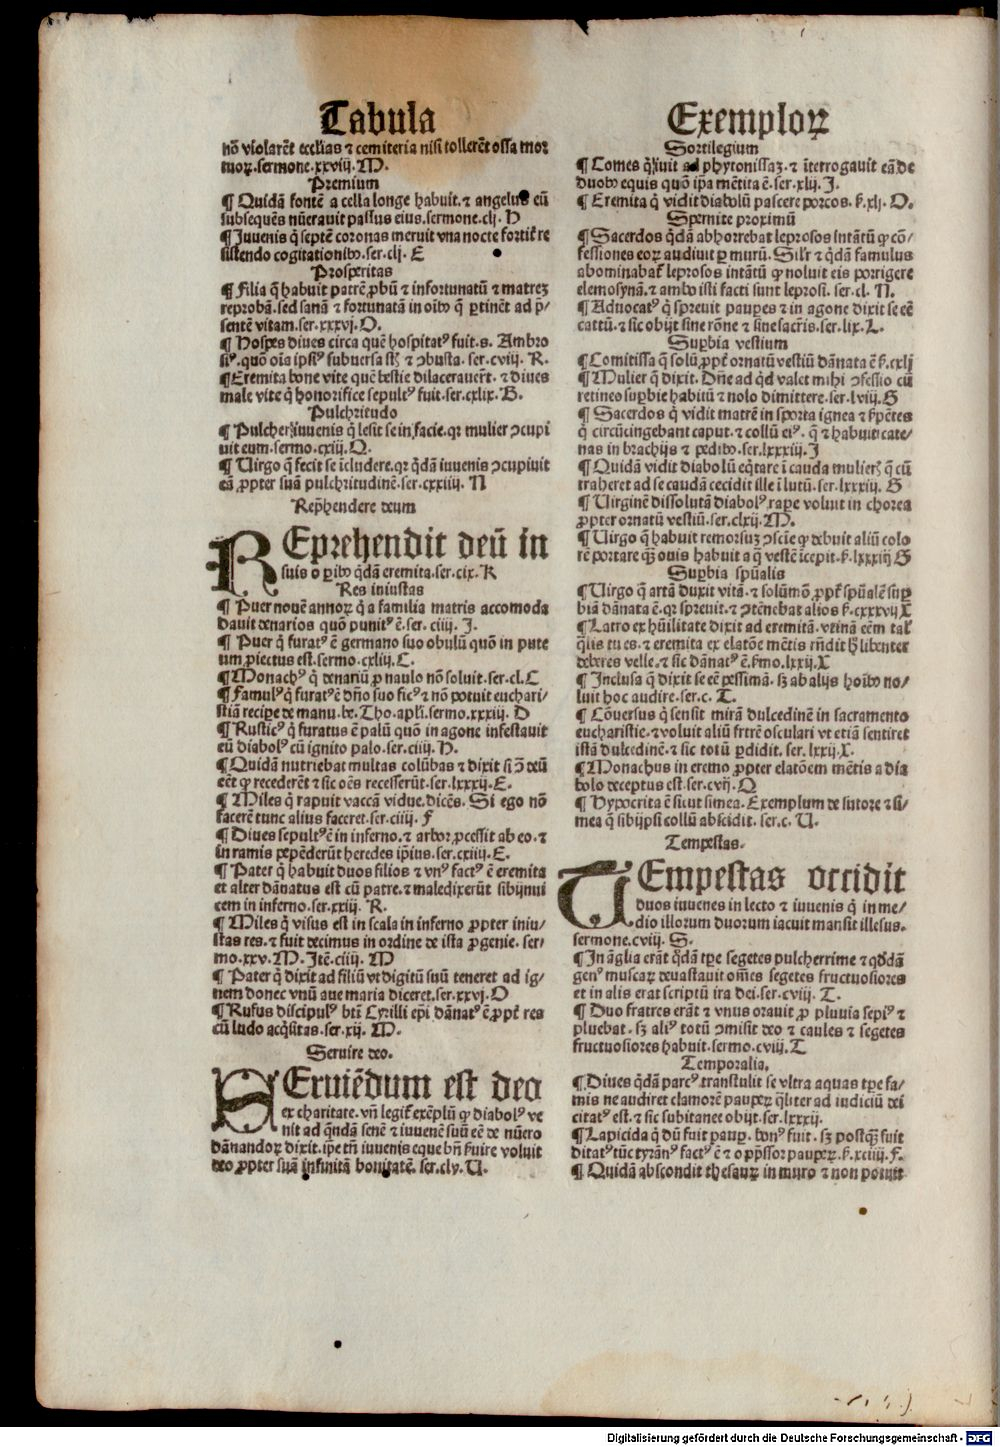 Tabula
nō violarēt eccĺias ⁊ cemiteria nisi tollerēt ossa mor
tuoꝝ.sermone.xxviij.M.
Premium
¶ Quidā fontē a cella longe habuit.⁊ angelus eū
subsequēs nūeravit passus eius.sermone.clj. H
¶ Juvenis q̄ septē coronas meruit vna nocte fortiť re
sistendo cogitationibꝰ.ser.clj. E
Prosperitas
¶ Filia q̄ habuit patrē ꝓbū ⁊ infortunatū ⁊ matrez
reprobā.sed sanā ⁊ fortunatā in oībꝰ q̄ ꝑtinēt ad p̄-
sentē vitam.ser.xxxvj.O.
¶ Hospes dives circa quē hospitatꝰ fuit.s. Ambro
siꝰ.quō oīa ipsiꝰ subversa st̄ ⁊ ꝯbusta. ser.cviij. R.
¶ Eremita bone vite quē bestie dilaceraverūt. ⁊ dives
male vite q̄ honorifice sepultꝰ fuit.ser.cxlix.B.
Pulchritudo
¶ Pulcher iuvenis q̄ lesit se in facie.qꝛ mulier ꝯcupi
vit eum.sermo.cxiij.Q.
¶ Uirgo q̄ fecit se īcludere.qꝛ q̄dā iuvenis ꝯcupivit
eā ꝓpter suā pulchritudinē.ser.cxxiiij. N
Rep̄hendere deum
REprehendit deū in
suis oꝑibꝰ q̄dā eremita.ser.cix.K
Res iniustas
¶ Puer novē annoꝝ q̄ a familia matris accomoda
davit denarios quō punitꝰ ē.ser.ciiij. J.
¶ Puer q̄ furatꝰ ē germano suo obulū quō in pute
um ꝓiectus est.sermo.cxliij.C.
¶ Monachꝰ q̄ denariū ꝓ naulo nō solvit.ser.cl.C
¶ Famulꝰ q̄ furatꝰ ē dn̄o suo ficꝰ ⁊ nō potuit euchari-
stiā recipe de manu.be.Tho.apĺi.sermo.xxxiij. D
¶ Rusticꝰ q̄ furatus ē palū quō in agone infestavit
eū diabolꝰ cū ignito palo.ser.ciiij.H.
¶ Quidā nutriebat multas colūbas ⁊ dixit si ꝯ deū
eēt ꝙ recederēt ⁊ sic oēs recesserūt.ser.lxxxij.E.
¶ Miles q̄ rapuit vaccā vidue.dicēs. Si ego nō
facerē tunc alius faceret.ser.ciiij. F
¶ Dives sepultꝰ ē in inferno.⁊ arbor ꝓcessit ab eo.⁊
in ramis pepēderūt heredes ip̄ius.ser.cxiiij.E.
¶ Pater q̄ habuit duos filios ⁊ vnꝰ factꝰ ē eremita
et alter dānatus est cū patre.⁊ maledixerūt sibijnvi
cem in inferno.ser.xxiij. R.
¶ Miles q̄ visus est in scala in inferno ꝓpter iniu-
stas res.⁊ fuit decimus in ordine de ista ꝓgenie. ser-
mo.xxv.M. Itē.ciiij. M
¶ Pater q̄ dixit ad filiū vt digitū suū teneret ad ig-
nem donec vnū ave maria diceret.ser.xxvj.O
¶ Rufus discipulꝰ btī Cyrilli ep̄i dānatꝰ ē ꝓpť res
cū ludo acq̄sitas.ser.xij. M.
Servire deo.
SErviēdum est deo
ex charitate. vn̄ legiť exēplū ꝙ diabolꝰ ve
nit ad quendā senē ⁊ iuvenē suū eē de nūero
dānandoꝝ dixit.ip̄e tn̄ iuvenis eque bn̄ ẜuire voluit
deo ꝓpter suā infinitā bonitatē. ser.clv.U.
Exemploꝝ
Sortilegium
¶ Comes q̄sivit ad phytonissaꝫ.⁊ īterrogavit eādē de
duobꝰ equis quō ip̄a mētita ē.ser.xlij.J.
¶ Eremita q̄ vidit diabolū pascere porcos. ẜ.xlj.O.
Spernite proximū
¶ Sacerdos q̄dā abhorrebat leprosos intātū ꝙ cō-
fessiones eoꝝ audivit ꝑ murū. Siĺr ⁊ q̄dā famulus
abominabať leprosos intātū ꝙ noluit eis porrigere
elemosynā.⁊ ambo isti facti sunt leprosi. ser.cl. N.
¶ Advocatꝰ q̄ sprevit paupes ⁊ in agone dixit se eē
cattū.⁊ sic obijt sine rōne ⁊ sine sacrīs.ser.lix.L.
Suꝑbia vestium
¶ Comitissa q̄ solū ꝓpť ornatū vestiū dānata ē ẜ.cxlj
¶ Mulier q̄ dixit. Dn̄e ad qd̄ valet mihi ꝯfessio cū
retineo suꝑbie habitū ⁊ nolo dimittere.ser.lviij.G
¶ Sacerdos q̄ vidit matrē in sporta ignea ⁊ ẜpētes
q̄ circūcingebant caput.⁊ collū eiꝰ. q̄ ⁊ habuit cate-
nas in brachijs ⁊ pedibꝰ.ser.lxxxiij.J
¶ Quidā vidit diabolū eq̄tare ī cauda mulierꝭ q̄ cū
traheret ad se caudā cecidit ille ī lutū.ser.lxxxiij. G
¶ Uirginē dissolutā diabolꝰ rape voluit in chorea
ꝓpter ornatū vestiū.ser.clxij.M.
¶ Uirgo q̄ habuit remorsuꝫ ꝯsciē ꝙ debuit aliū colo
rē portare qꝫ ovis habuit a q̄ vestē īcepit.ẜ.lxxxiij G
Suꝑbia spūalis
¶ Uirgo q̄ artā duxit vitā.⁊ solūmō ꝓpť spūalē suꝑ
biā dānata ē.qꝛ sprevit.⁊ ꝯtēnebat alios ẜ.cxxxvij X
¶ Latro ex hūilitate dixit ad eremitā.vtinā eēm taĺ
q̄lis tu es.⁊ eremita ex elatōe mētis rn̄dit ħ libenter
deberes velle.⁊ sic dānatꝰ ē.ẜmo.lxxij.X
¶ Inclusa q̄ dixit se eē pessimā. sꝫ ab alijs hoībꝰ no-
luit hoc audire.ser.c. T.
¶ Cōversus q̄ sensit mirā dulcedinē in sacramento
eucharistie.⁊ voluit aliū frēm osculari vt etiā sentiret
istā dulcedinē.⁊ sic totū ꝑdidit. ser.lxxij.X.
¶ Monachus in eremo ꝓpter elatōem mētis a dia
bolo deceptus est.ser.cvij.Q
¶ Hypocrita ē sicut simea. Exemplum de sutore ⁊ si-
mea q̄ sibijpsi collū abscidit. ser.c. U.
Tempestas.
TEmpestas occidit
duos iuvenes in lecto ⁊ iuvenis q̄ in me-
dio illorum duorum iacuit mansit illesus.
sermone.cviij. S.
¶ In āglia erāt q̄dā tꝑe segetes pulcherrime ⁊ qd̄dā
genꝰ muscaꝝ devastavit omēs segetes fructuosiores
et in alis erat scriptū ira dei.ser.cviij. T.
¶ Duo fratres erāt ⁊ vnus oravit ꝓ pluvia sepiꝰ ⁊
pluebat. sꝫ aliꝰ totū ꝯmisit deo ⁊ caules ⁊ segetes
fructuosiores habuit.sermo.cviij.T
Temporalia.
¶ Dives q̄dā parcꝰ transtulit se vltra aquas tꝑe fa-
mis ne audiret clamorē pauꝑeꝝ q̄liter ad iudiciū dei
citatꝰ est.⁊ sic subitanee obijt.ser.lxxxij.
¶ Lapicida q̄ dū fuit pauꝑ. bonꝰ fuit. sꝫ postqꝫ fuit
ditatꝰ tūc tyrānꝰ factꝰ ē ⁊ opp̄ssor paupeꝝ. ẜ.xciiij.F.
¶ Quidā abscondit thesauꝝ in muro ⁊ non potuit
Digitalisierung gefördert durch die Deutsche Forschungsgemeinschaft - DFG